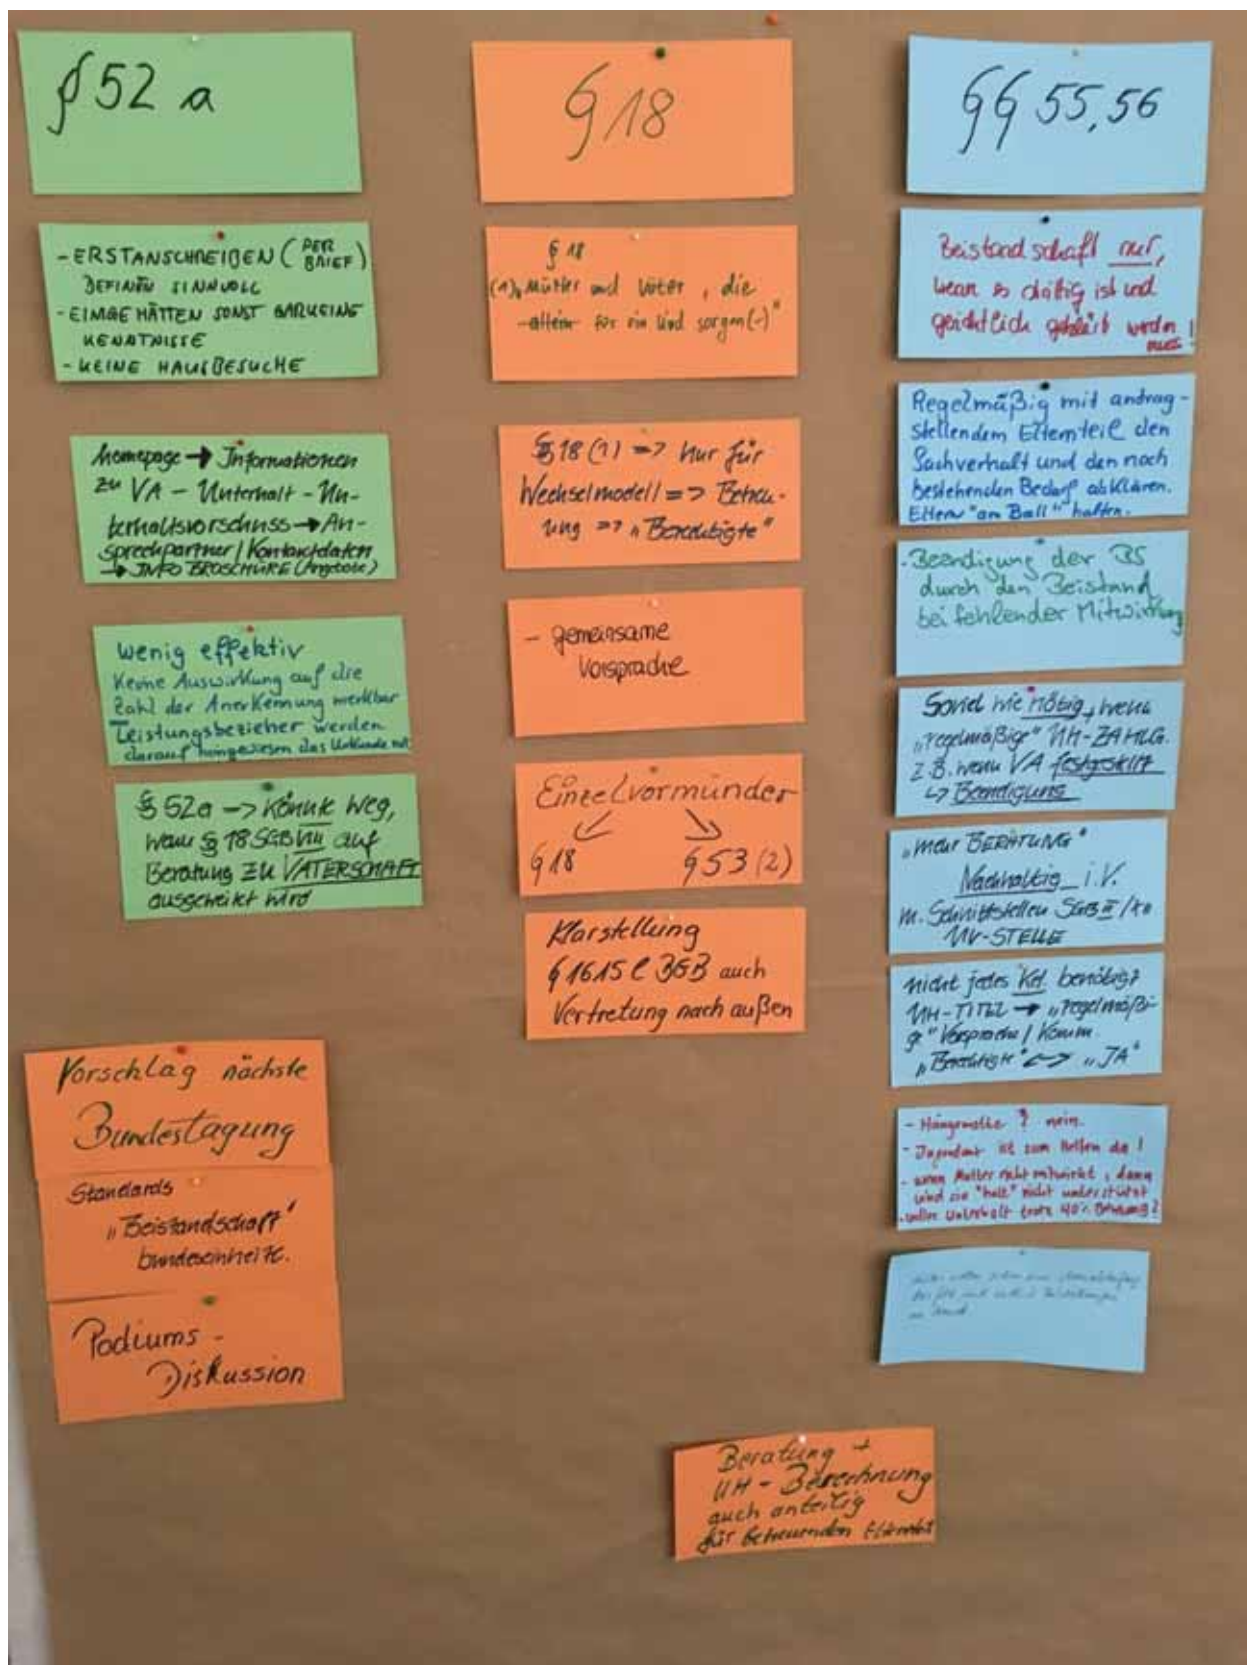 § 52 a
- ERSTANSCHREIBEN (PER BRIEF)
DEFINÍV SINNVOLL
- EINIGE HÄTTEN SONST GARKEINE
KENNTNISSE
- KEINE HAUSBESUCHE
Homepage → Informationen
zu VA – Unterhalt – Un-
terhaltsvorschuss → An-
sprechpartner / Kontaktdaten
→ INFO BROSCHÜRE (Angebote)
wenig effektiv
Keine Auswirkung auf die
Zahl der Anerkennung merkbar
Leistungsbezieher werden
darauf hingewiesen das Urkunde
§ 52a -> Könnte weg,
wenn § 18 SGB VIII auf
Beratung ZU VATERSCHAFT
ausgeweitet wird
Vorschlag nächste
Bundestagung
Standards
"Beistandschaft"
bundeseinheitl.
Podiums-
Diskussion
§ 18
§ 18
(1) "Mütter und Väter, die
allein für ein Kind sorgen (-)"
§ 18 (1) => Nur für
Wechselmodell => Betreu-
ung => "Berechtigte"
- gemeinsame
Vorsprache
Einzelvormünder
§ 18 § 53 (2)
Klarstellung
§ 1615 l BGB auch
Vertretung nach außen
Beratung +
UH - Berechnung
auch anteilig
für betreuenden Elternteil
§§ 55, 56
Beistandschaft nur,
wenn es strittig ist und
gerichtlich geklärt werden
muss!
Regelmäßig mit antrag-
stellendem Elternteil den
Sachverhalt und den noch
bestehenden Bedarf abklären.
Eltern "am Ball" halten.
- Beendigung der BS
durch den Beistand
bei fehlender Mitwirkung
Soviel wie nötig, wenn
"regelmäßige" UH-ZAHLG.
Z.B. wenn VA festgestellt
↳ Beendigung
"mehr BERATUNG"
Nachhaltig i.V.
m. Schnittstellen SGB II /
UV-STELLE
nicht jedes Kd. benötigt
UH-TITEL → "regelmäßi-
ge" Vorsprache / Komm.
"Berechtigte" <-> "JA"
- Hängematte ? nein.
- Jugendamt ist zum Helfen da !
- wenn Mutter nicht mitwirkt, dann
wird sie "halt" nicht unterstützt
- voller Unterhalt trotz 40% Betreuung ?